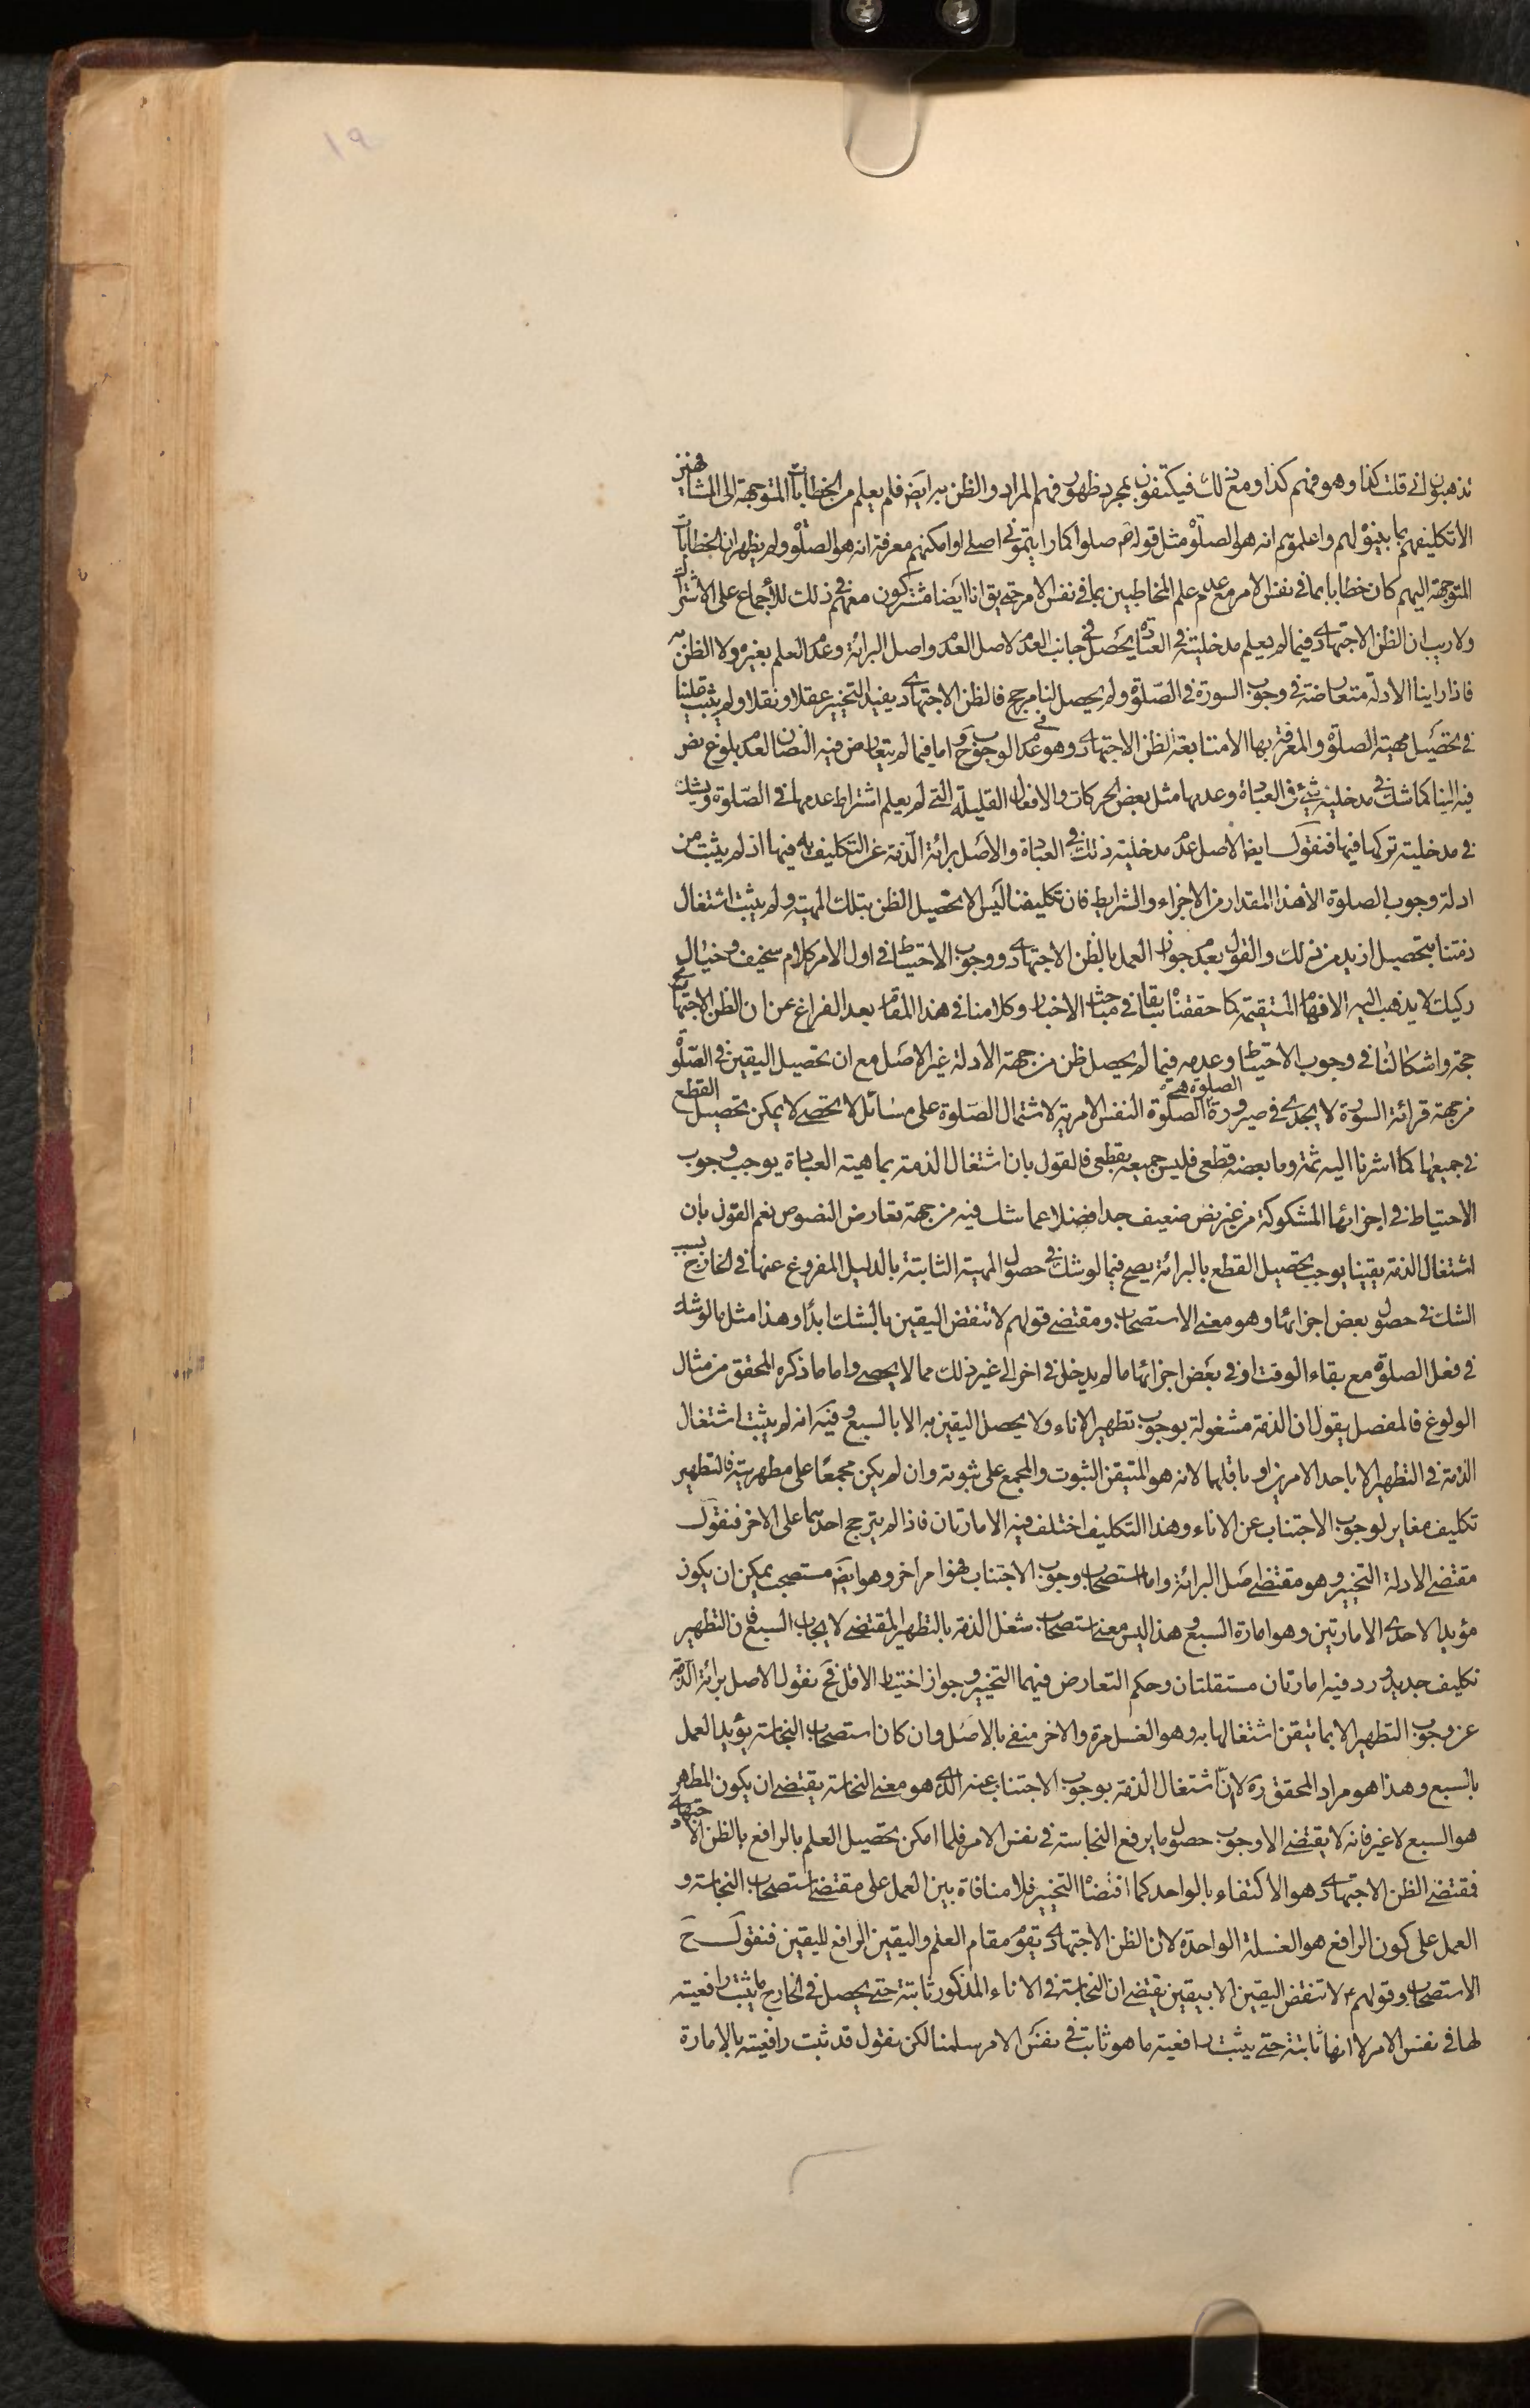 ١٩
تذهبون انى قلت كذا وهو فهم كذا ومع ذلك فيكتفون بمجرد ظهور فهم المراد والظن به ايضَ فلم يعلم من الخطابات المتوجهة الى المشافهين
الا تكليفهم بما بينوْ لهم واعلموهم انه هو الصلوْة مثل قوله صَ صلوا كما رايتمونى اصلى او امكنهم معرفة انه هو الصلوْة ولم يظهر ان الخطابات
المتوجهة اليهم كان خطابا بما فى نفس الامر مع عدم علم المخاطبين بما فى نفس الامر حتى يق انا ايضا مشتركون معهم فى ذلك للاجماع على الاشتراك
ولا ريب ان الظن الاجتهادى فيما لم يعلم مدخليته فى العبادة يحصل فى جانب العدم لاصل العدم واصل البرائة وعدم العلم بغيره ولا الظن به
فاذا راينا الادلة متعارضة فى وجوب السورة فى الصلوة ولم يحصل لنا مرجح فالظن الاجتهادى يفيد التخيير عقلا ونقلا ولم يثبت علينا
فى تحصيل مهية الصلوة والمعرفة بها الا متابعة الظن الاجتهادى وهو عدم الوجوب حَ واما فيما لم يتعارض فيه النصان لعدم بلوغ نص
فيه الينا كما شك فى مدخلية شئ فى العبادة وعدمها مثل بعض الحركات والافعال القليلة التى لم يعلم اشتراط عدمها فى الصلوة ويشك
فى مدخلية تركها فيها فنقول ايضا الاصل عدم مدخلية ذلك فى العبادة والاصل برائة الذمة عن التكليف به فيها اذ لم يثبت من
ادلة وجوب الصلوة الا هذا المقدار من الاجزاء والشرايط فان تكليفنا ليس الا تحصيل الظن بتلك المهية ولم يثبت اشتغال
ذمتنا بتحصيل ازيد من ذلك والقول بعدم جواز العمل بالظن الاجتهادى ووجوب الاحتياط فى اول الامر كلام سخيف وخيال
ركيك لا يذهب اليه الافهام المستقيمة كما حققناه سابقا فى مباحث الاخبار وكلامنا فى هذا المقام بعد الفراغ عن ان الظن الاجتهادى
حجة واشكالنا فى وجوب الاحتياط وعدمه فيما لم يحصل ظن من جهة الادلة غير الاصل مع ان تحصيل اليقين فى الصلوْة
من جهة قرائة السورة لا يجدى فى صيرورة الصلوة هى الصلوة النفس الامرية لاشتمال الصلوة على مسائل لا تحصى لا يمكن تحصيل القطع
فى جميعها كما اشرنا اليه ثمة وما بعضه قطعى فليس جميعه بقطعى فالقول بان اشتغال الذمة بماهية العبادة يوجب وجوب
الاحتياط فى اجزائها المشكوكة من غير نص ضعيف جدا فضلا عما شك فيه من جهة تعارض النصوص نعم القول بان
اشتغال الذمة يقينا يوجب تحصيل القطع بالبرائة يصح فيما لو شك فى حصول المهية الثابتة بالدليل المفروغ عنها فى الخارج بسبب
الشك فى حصول بعض اجزائها وهو معنى الاستصحاب ومقتضى قولهم لا تنقض اليقين بالشك ابدًا وهذا مثل ما لو شك
فى فعل الصلوة مع بقاء الوقت او فى بعض اجزائها ما لم يدخل فى اخر الى غير ذلك مما لا يحصى واما ما ذكره المحقق من مثال
الولوغ فالمفصل يقول ان الذمة مشغولة بوجوب تطهير الاناء ولا يحصل اليقين به الا بالسبع وفيه انه لم يثبت اشتغال
الذمة فى التطهير الا باحد الامرين او باقلهما لانه هو المتيقن الثبوت والمجمع على ثبوته وان لم يكن مجمعًا على مطهريته فالتطهير
تكليف مغاير لوجوب الاجتناب عن الاناء وهذا التكليف اختلف فيه الامارتان فاذا لم يترجح احدهما على الاخر فنقول
مقتضى الادلة التخيير وهو مقتضى اصل البرائة واما استصحاب وجوب الاجتناب فهو امر اخر وهو ايضَ مستصحب يمكن ان يكون
مؤيدا لاحدى الامارتين وهو امارة السبع وهذا ليس معنى استصحاب شغل الذمة بالتطهير المقتضى لايجاب السبع فان التطهير
تكليف جديد ورد فيه امارتان مستقلتان وحكم التعارض فيهما التخيير وجواز اختيار الاقل فحَ نقول الاصل برائة الذمة
عن وجوب التطهير الا بما تيقن اشتغالها به وهو الغسل مرة والاخر منفى بالاصل وان كان استصحاب النجاسة يؤيد العمل
بالسبع وهذا هو مراد المحقق ره لان اشتغال الذمة بوجوب الاجتناب عنه الذى هو معنى النجاسة يقتضى ان يكون المطهر
هو السبع لا غير فانه لا يقتضى الا وجوب حصول ما يرفع النجاسة فى نفس الامر فلما امكن تحصيل العلم بالرافع بالظن الاجتهادى
فمقتضى الظن الاجتهادى هو الاكتفاء بالواحد كما اقتضاه التخيير فلا منافاة بين العمل على مقتضى استصحاب النجاسة و
العمل على كون الرافع هو الغسلة الواحدة لان الظن الاجتهادى يقوم مقام العلم واليقين الرافع لليقين فنقول حَ
الاستصحاب وقولهم ع لا تنقض اليقين الا بيقين يقتضى ان النجاسة فى الاناء المذكور ثابتة حتى يحصل فى الخارج ما يثبت رافعيته
لها فى نفس الامر لا انها ثابتة حتى يثبت رافعية ما هو ثابت فى نفس الامر سلمنا لكن نقول قد ثبت رافعيته بالامارة